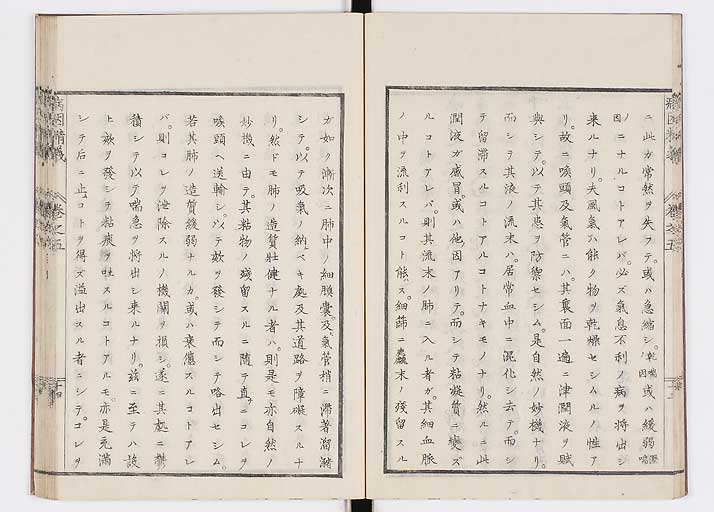 ニ此カ常然ヲ失フテ。或ハ急縮シ。乾喘ノ因或ハ緩弱濕喘ノ因
ニナルコトアレバ。必ズ氣息不利ノ病ヲ將出シ
來ルナリ。夫風氣ハ能ク物ヲ乾燥セシムルノ性ア
リ。故ニ喉頭及氣管ニハ。其裏面一邊ニ津潤液ヲ賦
與シテ。以テ其惡ヲ防禦セシム。是自然ノ妙機ナリ。
而シテ其液ノ流末ハ。居常血中ニ混化シ去テ。而シ
テ留滞スルコトアルコトナキモノナリ。然ルニ此
潤液ガ感冒。或ハ他因アリテ。而シテ粘凝質ニ變ズ
ルコトアレバ。則其流末ノ肺ニ入ル者ガ。其細血脈
ノ中ヲ流利スルコト能ス。細篩ニ麤末ノ殘留スル
病因精義 卷之五
ガ如ク漸次ニ肺中ノ細膜囊。及氣管梢ニ滞著溜瀦
シテ。以テ吸氣ノ納ベキ處及其道路ヲ障礙スルナ
リ。然ドモ肺ノ造質壯健ナル者ハ。則是モ亦自然ノ
妙機ニ由テ。其粘物ノ殘留スルニ隨テ。直ニコレヲ
喉頭ヘ送輸シ。以テ欬ヲ發シテ而シテ咯出セシム。
若其肺ノ造質緩弱ナルカ。或ハ衰憊スルコトアレ
バ。則コレヲ泄除スルノ機關ヲ損シ。遂ニ其處ニ鬱
積シテ以テ喘急ヲ將出シ來ルナリ。茲ニ至テハ設
ヒ欬ヲ發シテ粘痰ヲ吐スルコトアルモ。亦是充滿
シテ后ニ止コトヲ得ズ溢出スル者ニシテ。コレヲ
病因精義 卷之五 十四